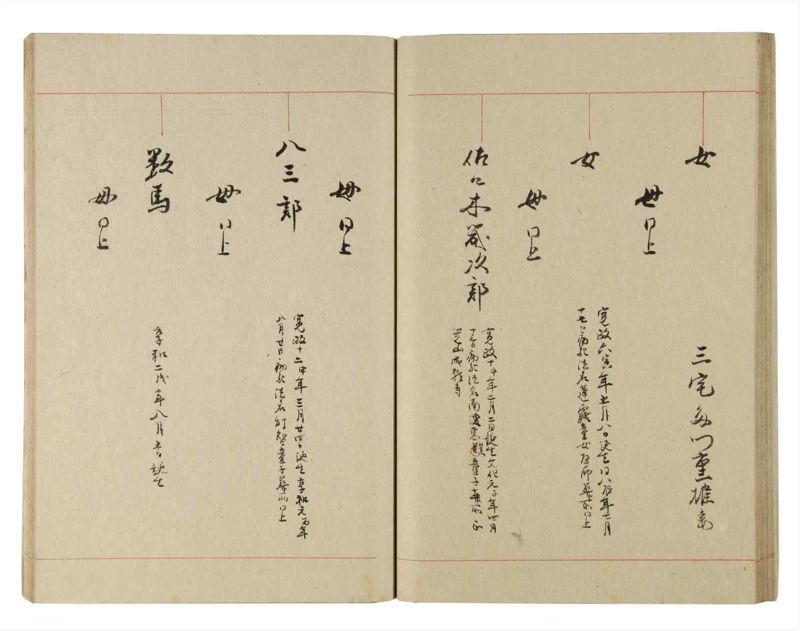 女
母同上
三宅多門重雄妻
女
母同上
寛政六寅年五月八日誕生同八辰年七月
十七日病死法名蓮露童女石師墓所同上
佐々木 次郎
母同上
寛政十午年二月二日誕生文化元子年四月
十三日病死法名 童子葬所
八三郎
母同上
寛政十二申年三月廿四日誕生享和元酉年
八月廿日病死法名 童子墓所同上
数馬
母同上
享和二戌年八月 日誕生